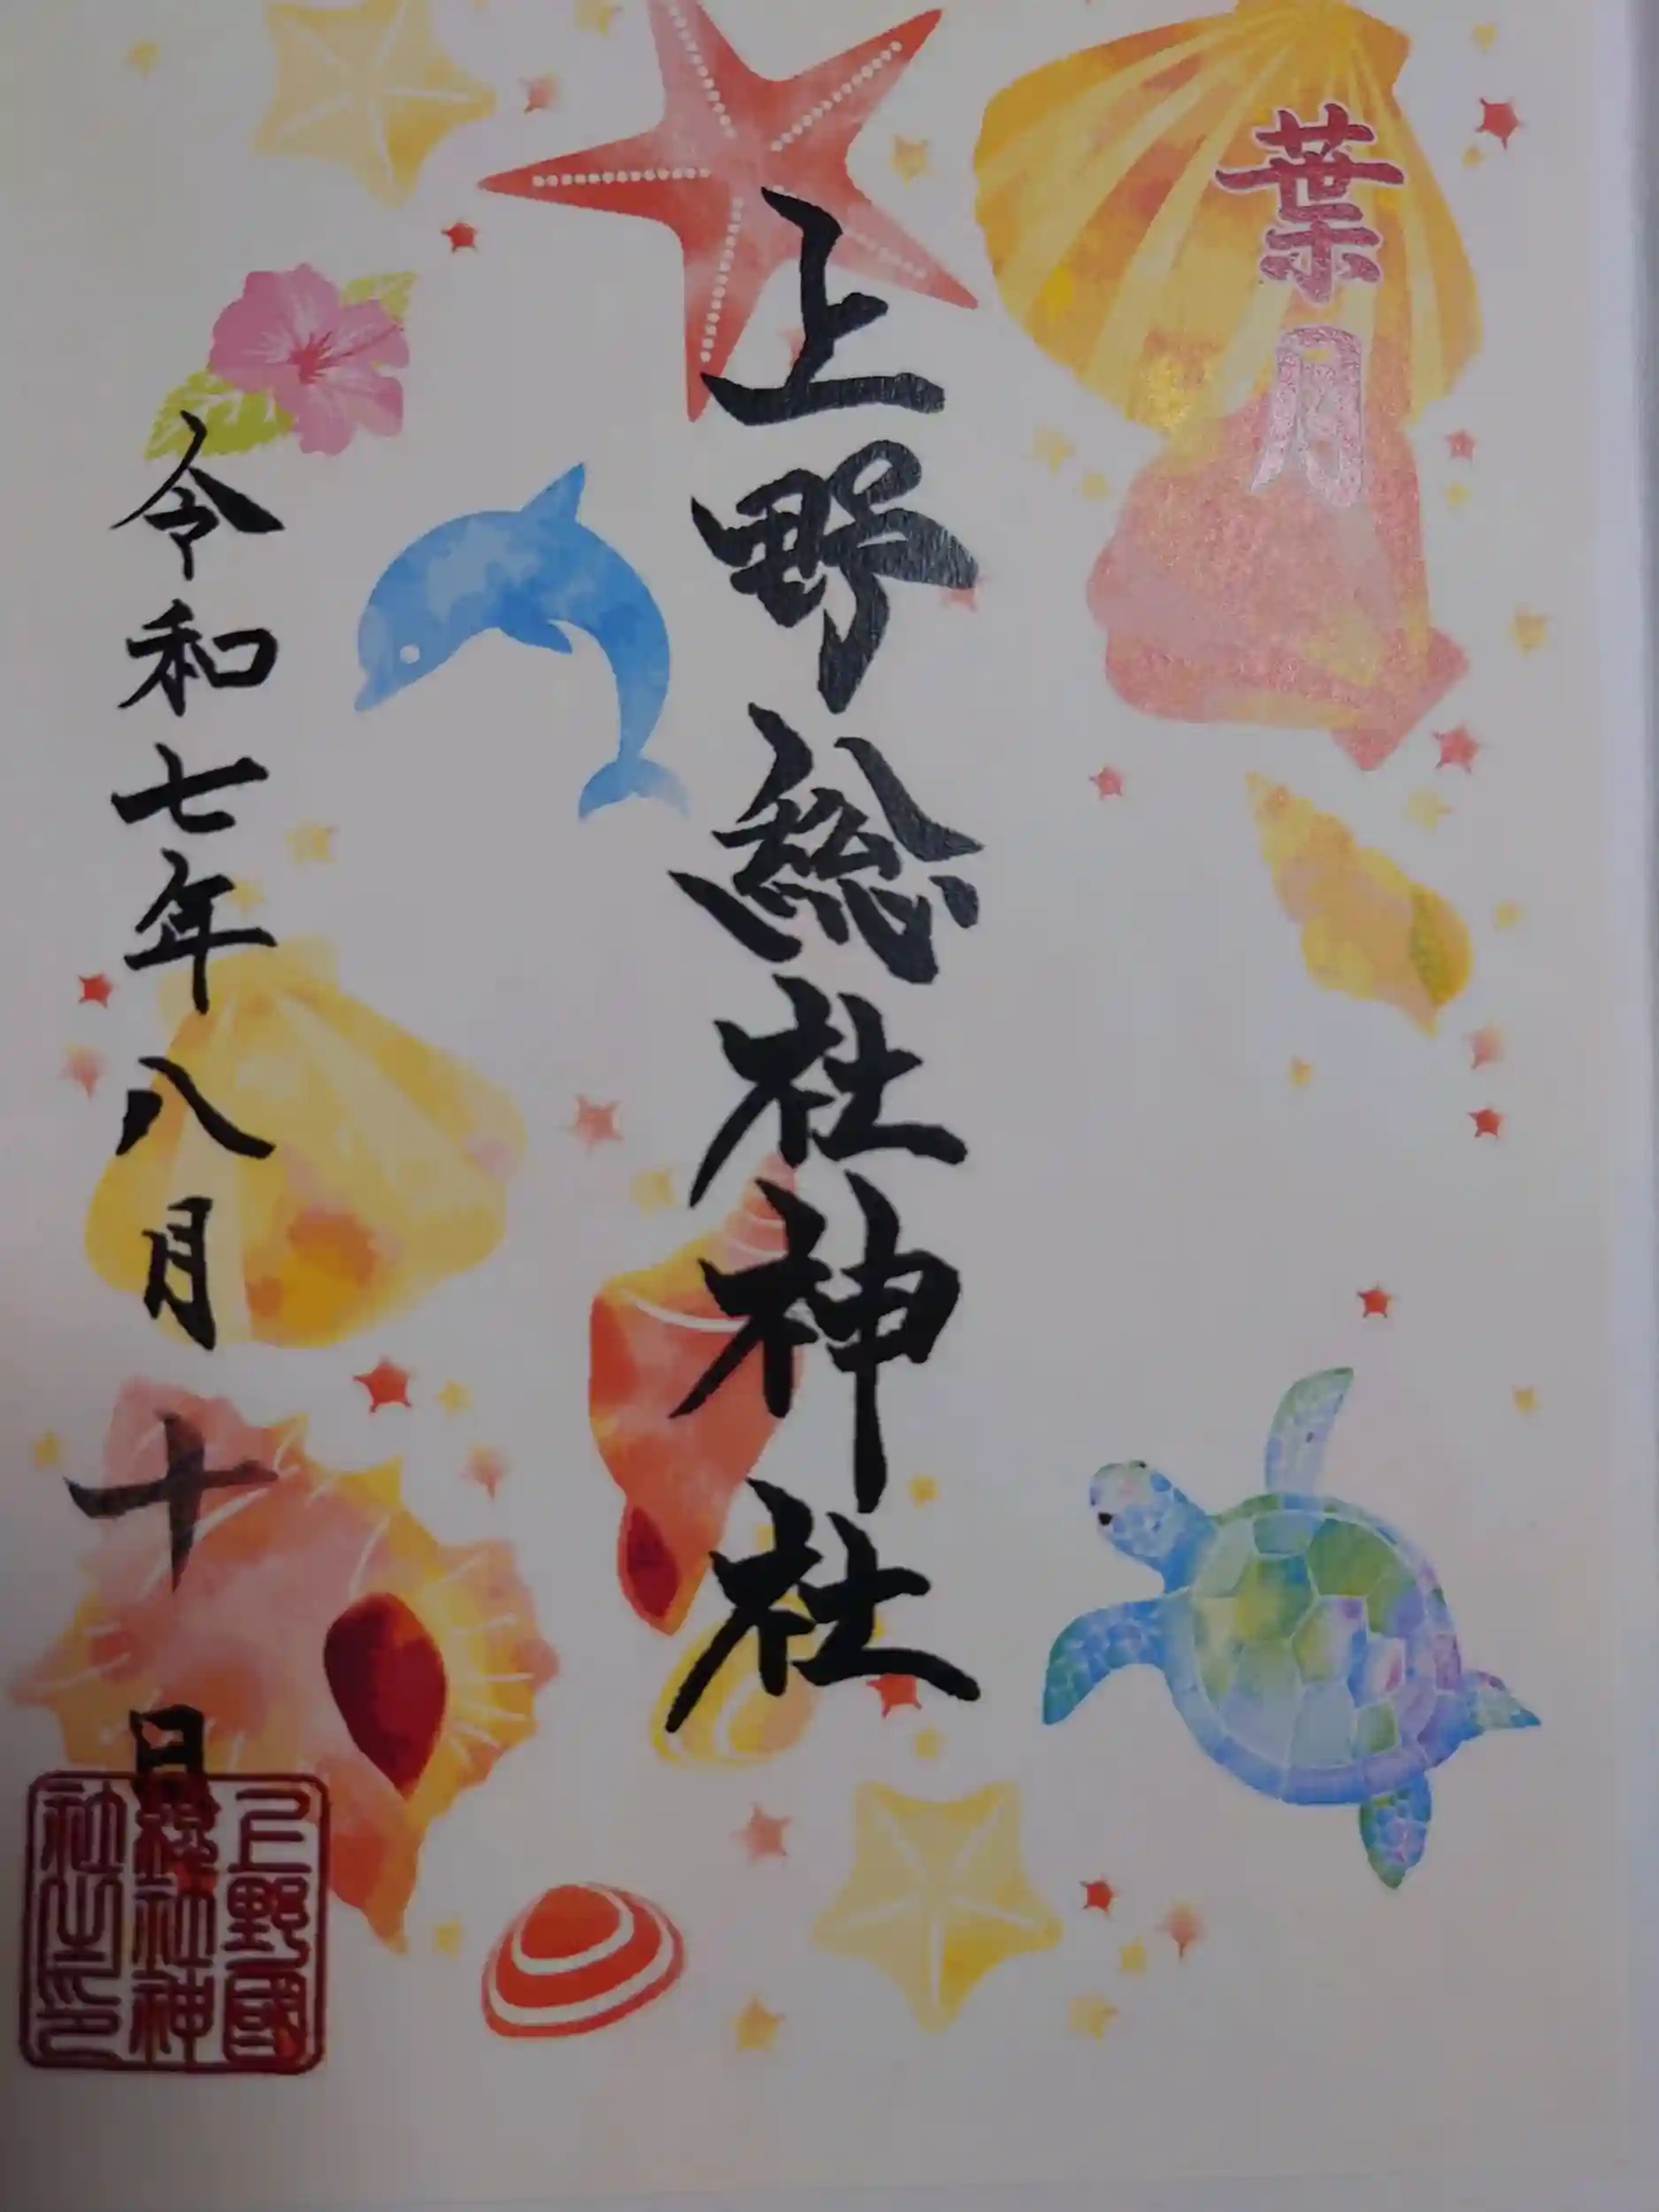 葉月
上野総社神社
令和七年八月十日
上野國
総社神
社之印